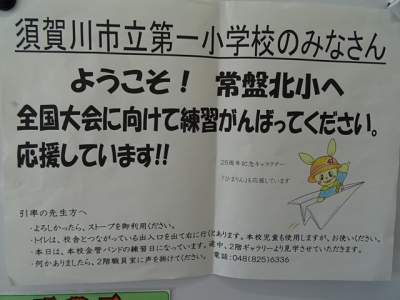 須賀川市立第一小学校のみなさん
ようこそ！ 常盤北小へ
全国大会に向けて練習がんばってください。
応援しています!!
25周年記念キャラクター
「ひまりん」も応援しています
引率の先生方へ
・よろしかったら、ストーブを御利用ください。
・トイレは、校舎とつながっている出入口を出て右に行くとあります。本校児童も使用しますが、お使いください。
・本日は、本校金管バンドの練習日になっています。途中、2階ギャラリーより見学させていただきます。
・何かありましたら、2階職員室に声を掛けてください。 電話:048(825)6336